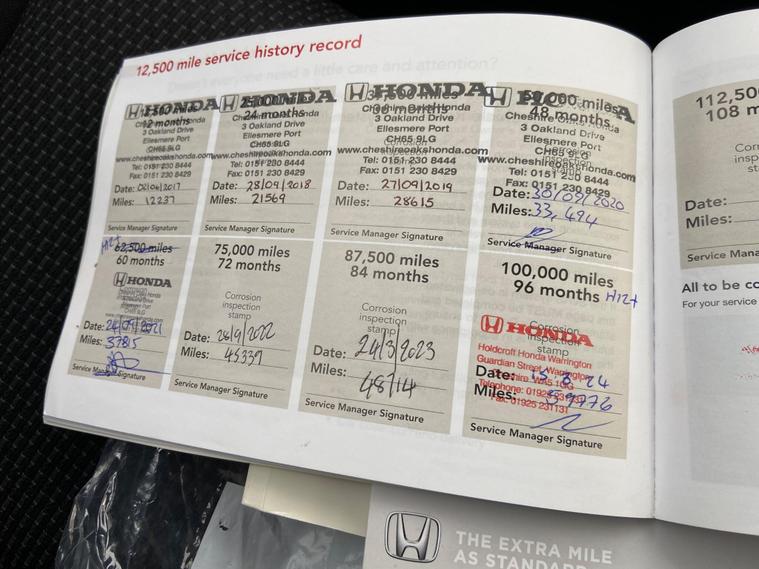 12,500 mile service history record
HONDA
12 months
3 Oakland Drive
Ellesmere Port
CH65 9LG
www.cheshireoakshonda.com
Tel: 0151 230 8444
Fax: 0151 230 8429
Date:
Miles: 12237
Service Manager Signature
HONDA
24 months
3 Oakland Drive
Ellesmere Port
CH65 9LG
www.cheshireoakshonda.com
Tel: 0151 230 8444
Fax: 0151 230 8429
Date: 28/09/2018
Miles: 21569
Service Manager Signature
HONDA
36 months
Cheshire Oaks Honda
3 Oakland Drive
Ellesmere Port
CH65 9LG
www.cheshireoakshonda.com
Tel: 0151 230 8444
Fax: 0151 230 8429
Date: 27/09/2019
Miles: 28615
Service Manager Signature
HONDA
50,000 miles
48 months
3 Oakland Drive
Ellesmere Port
CH65 9LG
www.cheshireoakshonda.com
Tel: 0151 230 8444
Fax: 0151 230 8429
Date: 30/09/2020
Miles: 33,494
Service Manager Signature
62,500 miles
60 months
HONDA
Date: 24/09/2021
Miles: 37815
Service Manager Signature
75,000 miles
72 months
Corrosion
inspection
stamp
Date: 26/9/2022
Miles: 45339
Service Manager Signature
87,500 miles
84 months
Corrosion
inspection
stamp
Date: 24/3/2023
Miles: 48714
Service Manager Signature
100,000 miles
96 months
H12+
Corrosion
inspection
stamp
HONDA
Holdcroft Honda Warrington
Guardian Street, Warrington
WA5 1UG
Telephone: 01925
Fax: 01925 231131
Date: 15.8.24
Miles: 59776
Service Manager Signature
112,50
108 m
Corr
insp
st
Date:
Miles:
Service Mana
All to be co
For your service
THE EXTRA MILE
AS STANDARD